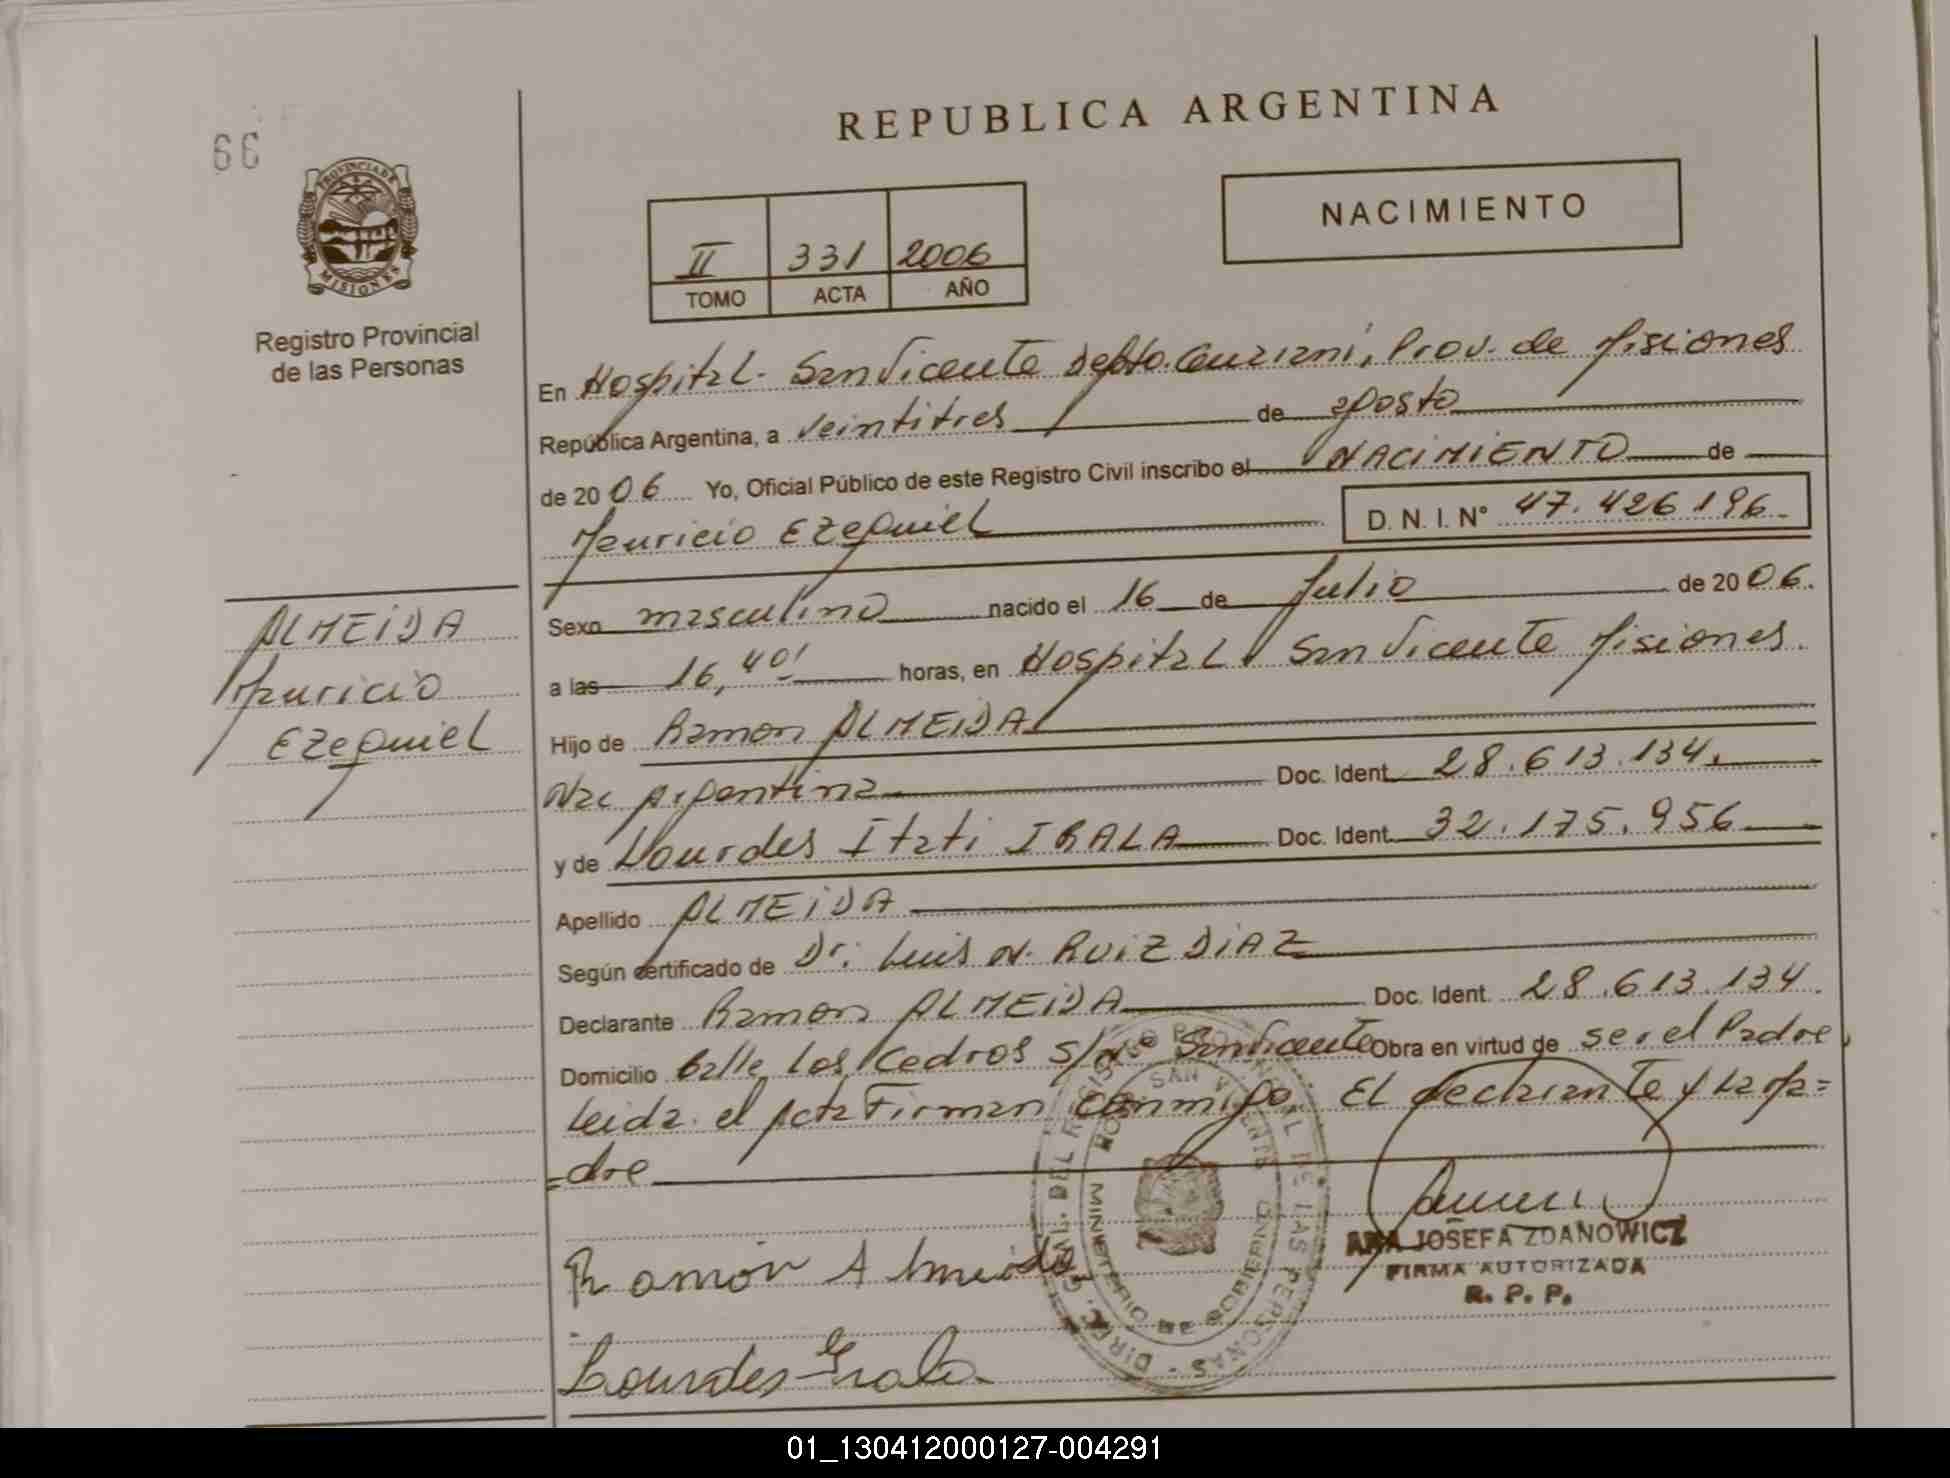 66
REPUBLICA ARGENTINA
PROVINCIA DE
MISIONES
Registro Provincial
de las Personas
II 331 2006
TOMO ACTA AÑO
NACIMIENTO
En Hospital - San Vicente Depto. Guarani, Prov. de Misiones
República Argentina, a veintitres de agosto
de 2006 Yo, Oficial Público de este Registro Civil inscribo el NACIMIENTO de
Mauricio Ezequiel D. N. I. N° 47.426.196.
ALMEIDA
Mauricio
Ezequiel
Sexo masculino nacido el 16 de Julio de 2006.
a las 16,40' horas, en Hospital San Vicente Misiones.
Hijo de Ramon ALMEIDA
Nac Argentina Doc. Ident. 28.613.134.
y de Lourdes Itati IRALA Doc. Ident. 32.175.956
Apellido ALMEIDA
Según certificado de Dr. Luis N. RUIZ DIAZ
Declarante Ramon ALMEIDA Doc. Ident. 28.613.134.
Domicilio Calle Los Cedros S/N° San Vicente Obra en virtud de ser el Padre,
Leida el Acta Firman conmigo, El declarante y La Ma=
=dre
Ramón Almeida
Lourdes Irala
DIR. GRAL. DEL REGISTRO PROVINCIAL DE LAS PERSONAS
SAN VICENTE
MINISTERIO DE GOBIERNO
ANA JOSEFA ZDANOWICZ
FIRMA AUTORIZADA
R. P. P.
01_130412000127-004291